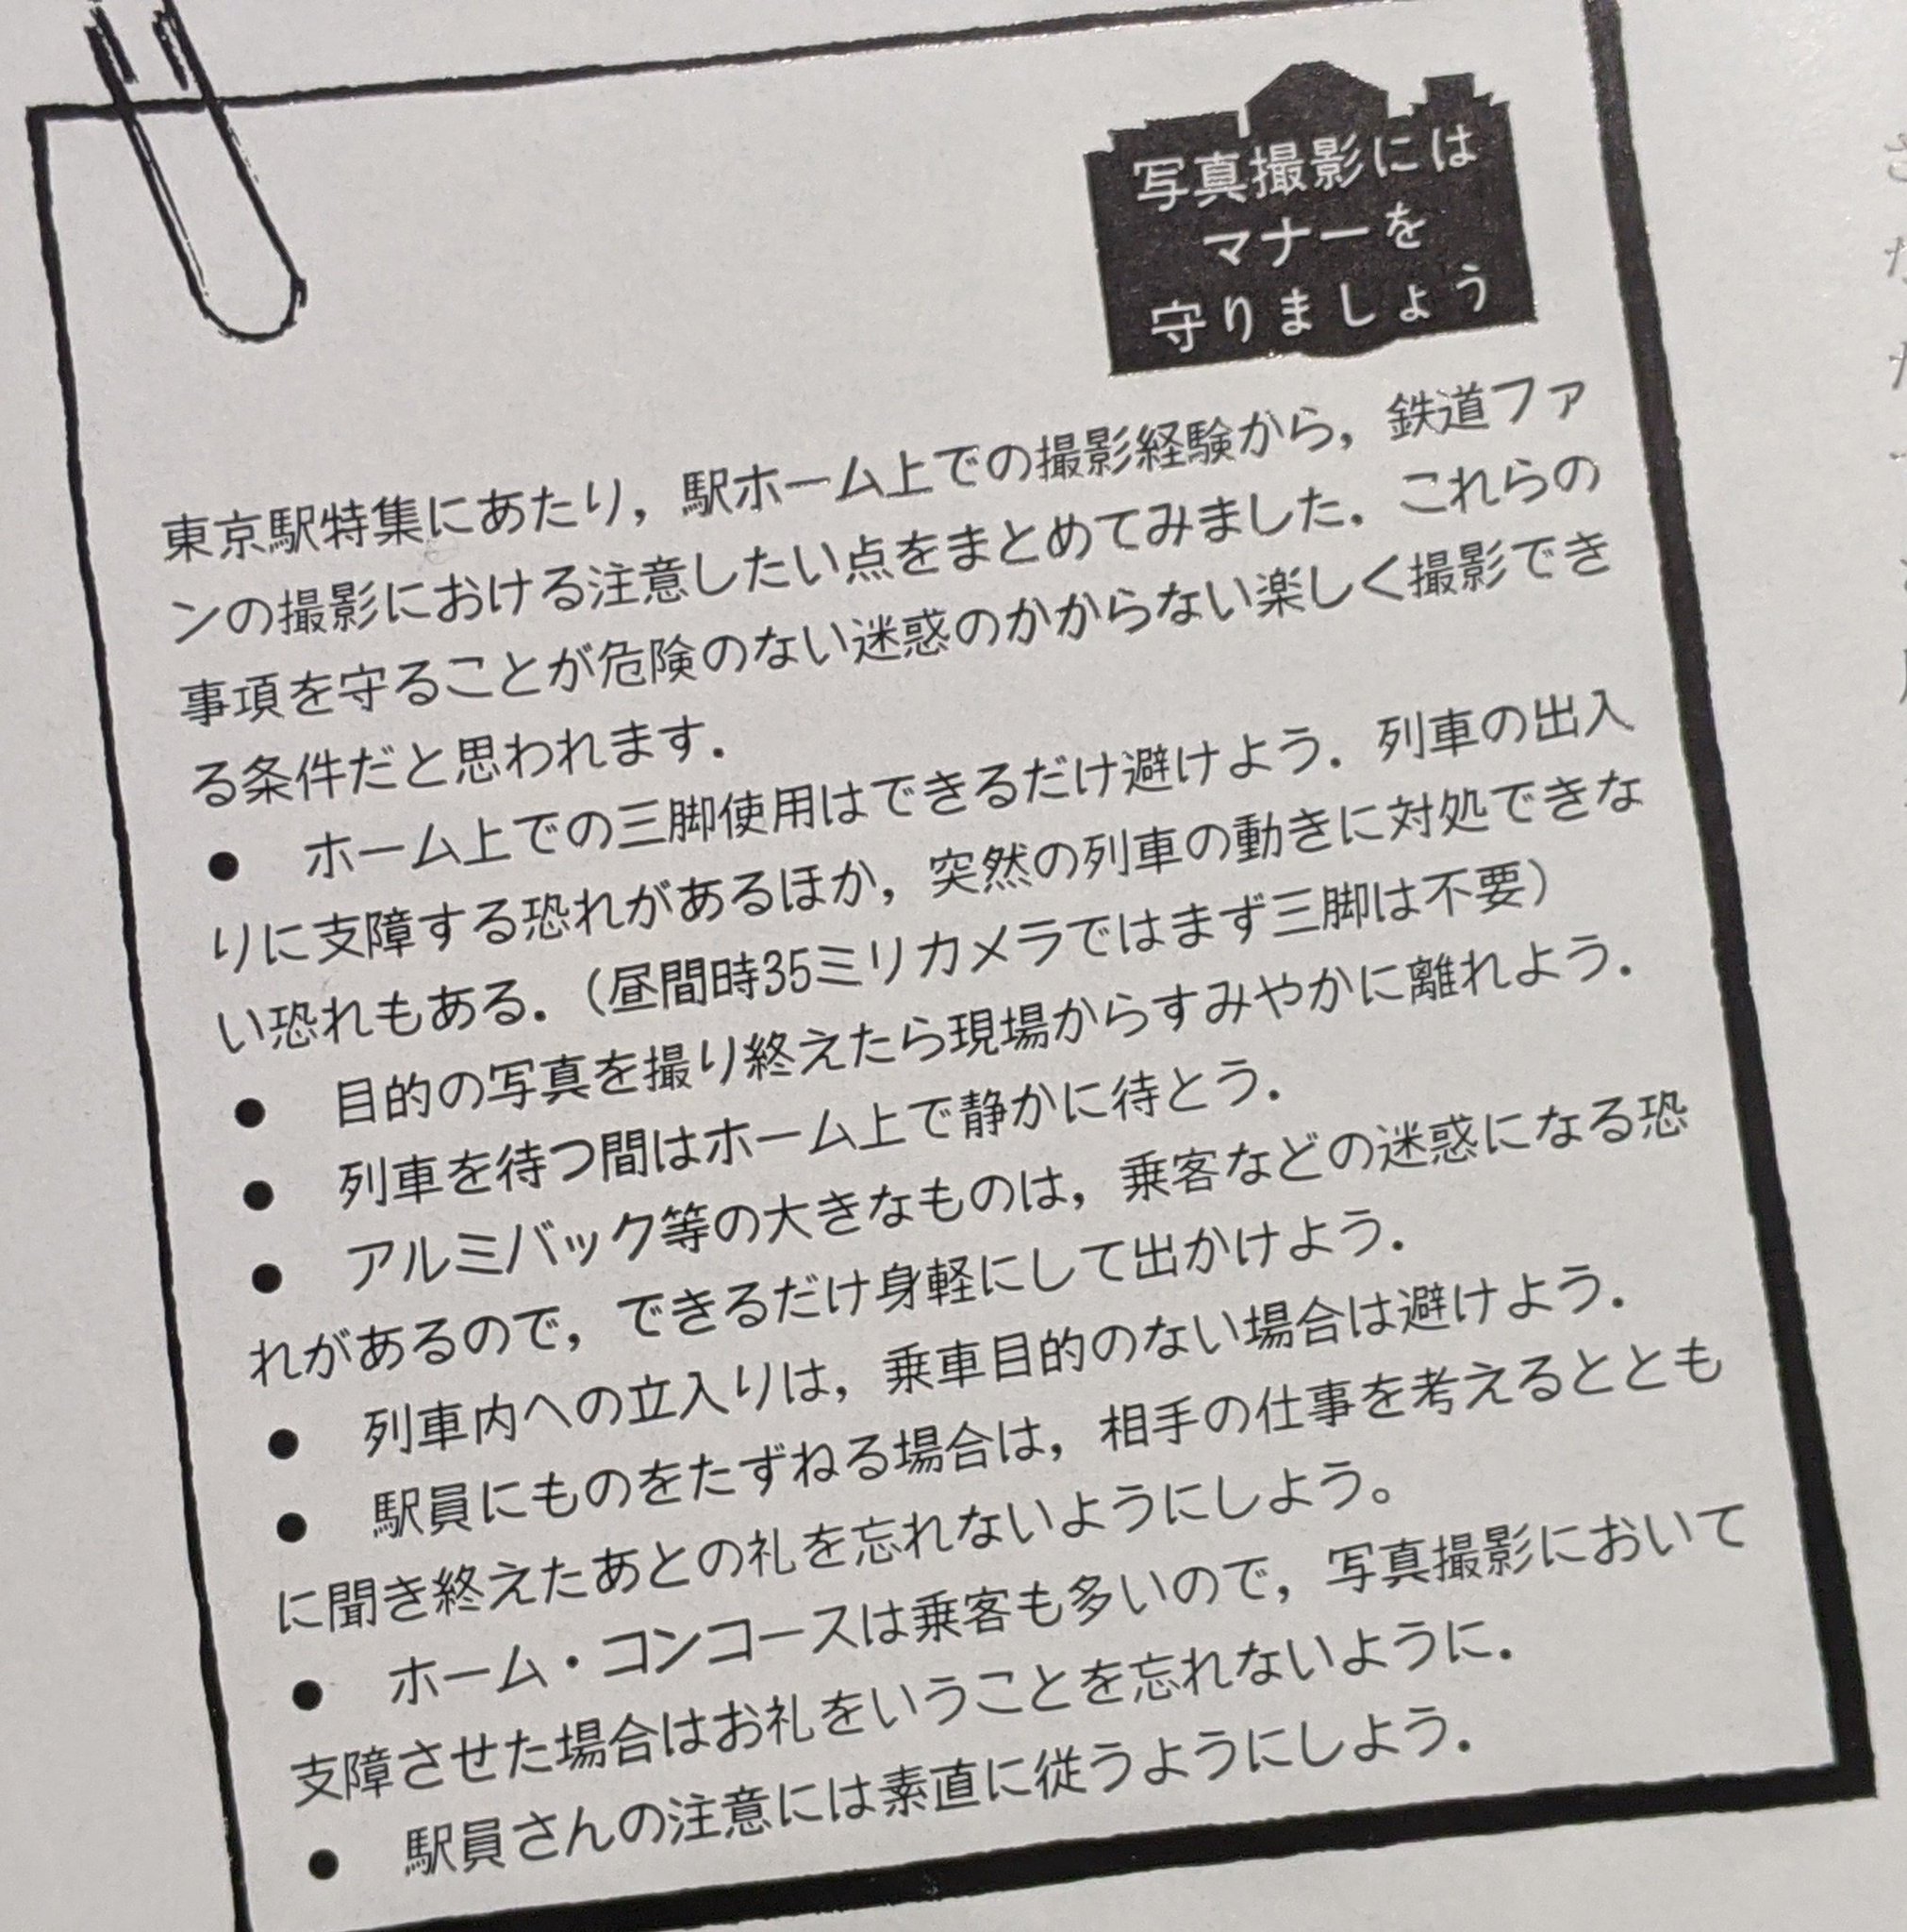 写真撮影には
マナーを
守りましょう
東京駅特集にあたり，駅ホーム上での撮影経験から，鉄道ファ
ンの撮影における注意したい点をまとめてみました．これらの
事項を守ることが危険のない迷惑のかからない楽しく撮影でき
る条件だと思われます．
●　ホーム上での三脚使用はできるだけ避けよう．列車の出入
りに支障する恐れがあるほか，突然の列車の動きに対処できな
い恐れもある．（昼間時35ミリカメラではまず三脚は不要）
●　目的の写真を撮り終えたら現場からすみやかに離れよう．
●　列車を待つ間はホーム上で静かに待とう．
●　アルミバック等の大きなものは，乗客などの迷惑になる恐
れがあるので，できるだけ身軽にして出かけよう．
●　列車内への立入りは，乗車目的のない場合は避けよう．
●　駅員にものをたずねる場合は，相手の仕事を考えるととも
に聞き終えたあとの礼を忘れないようにしよう。
●　ホーム・コンコースは乗客も多いので，写真撮影において
支障させた場合はお礼をいうことを忘れないように．
●　駅員さんの注意には素直に従うようにしよう．